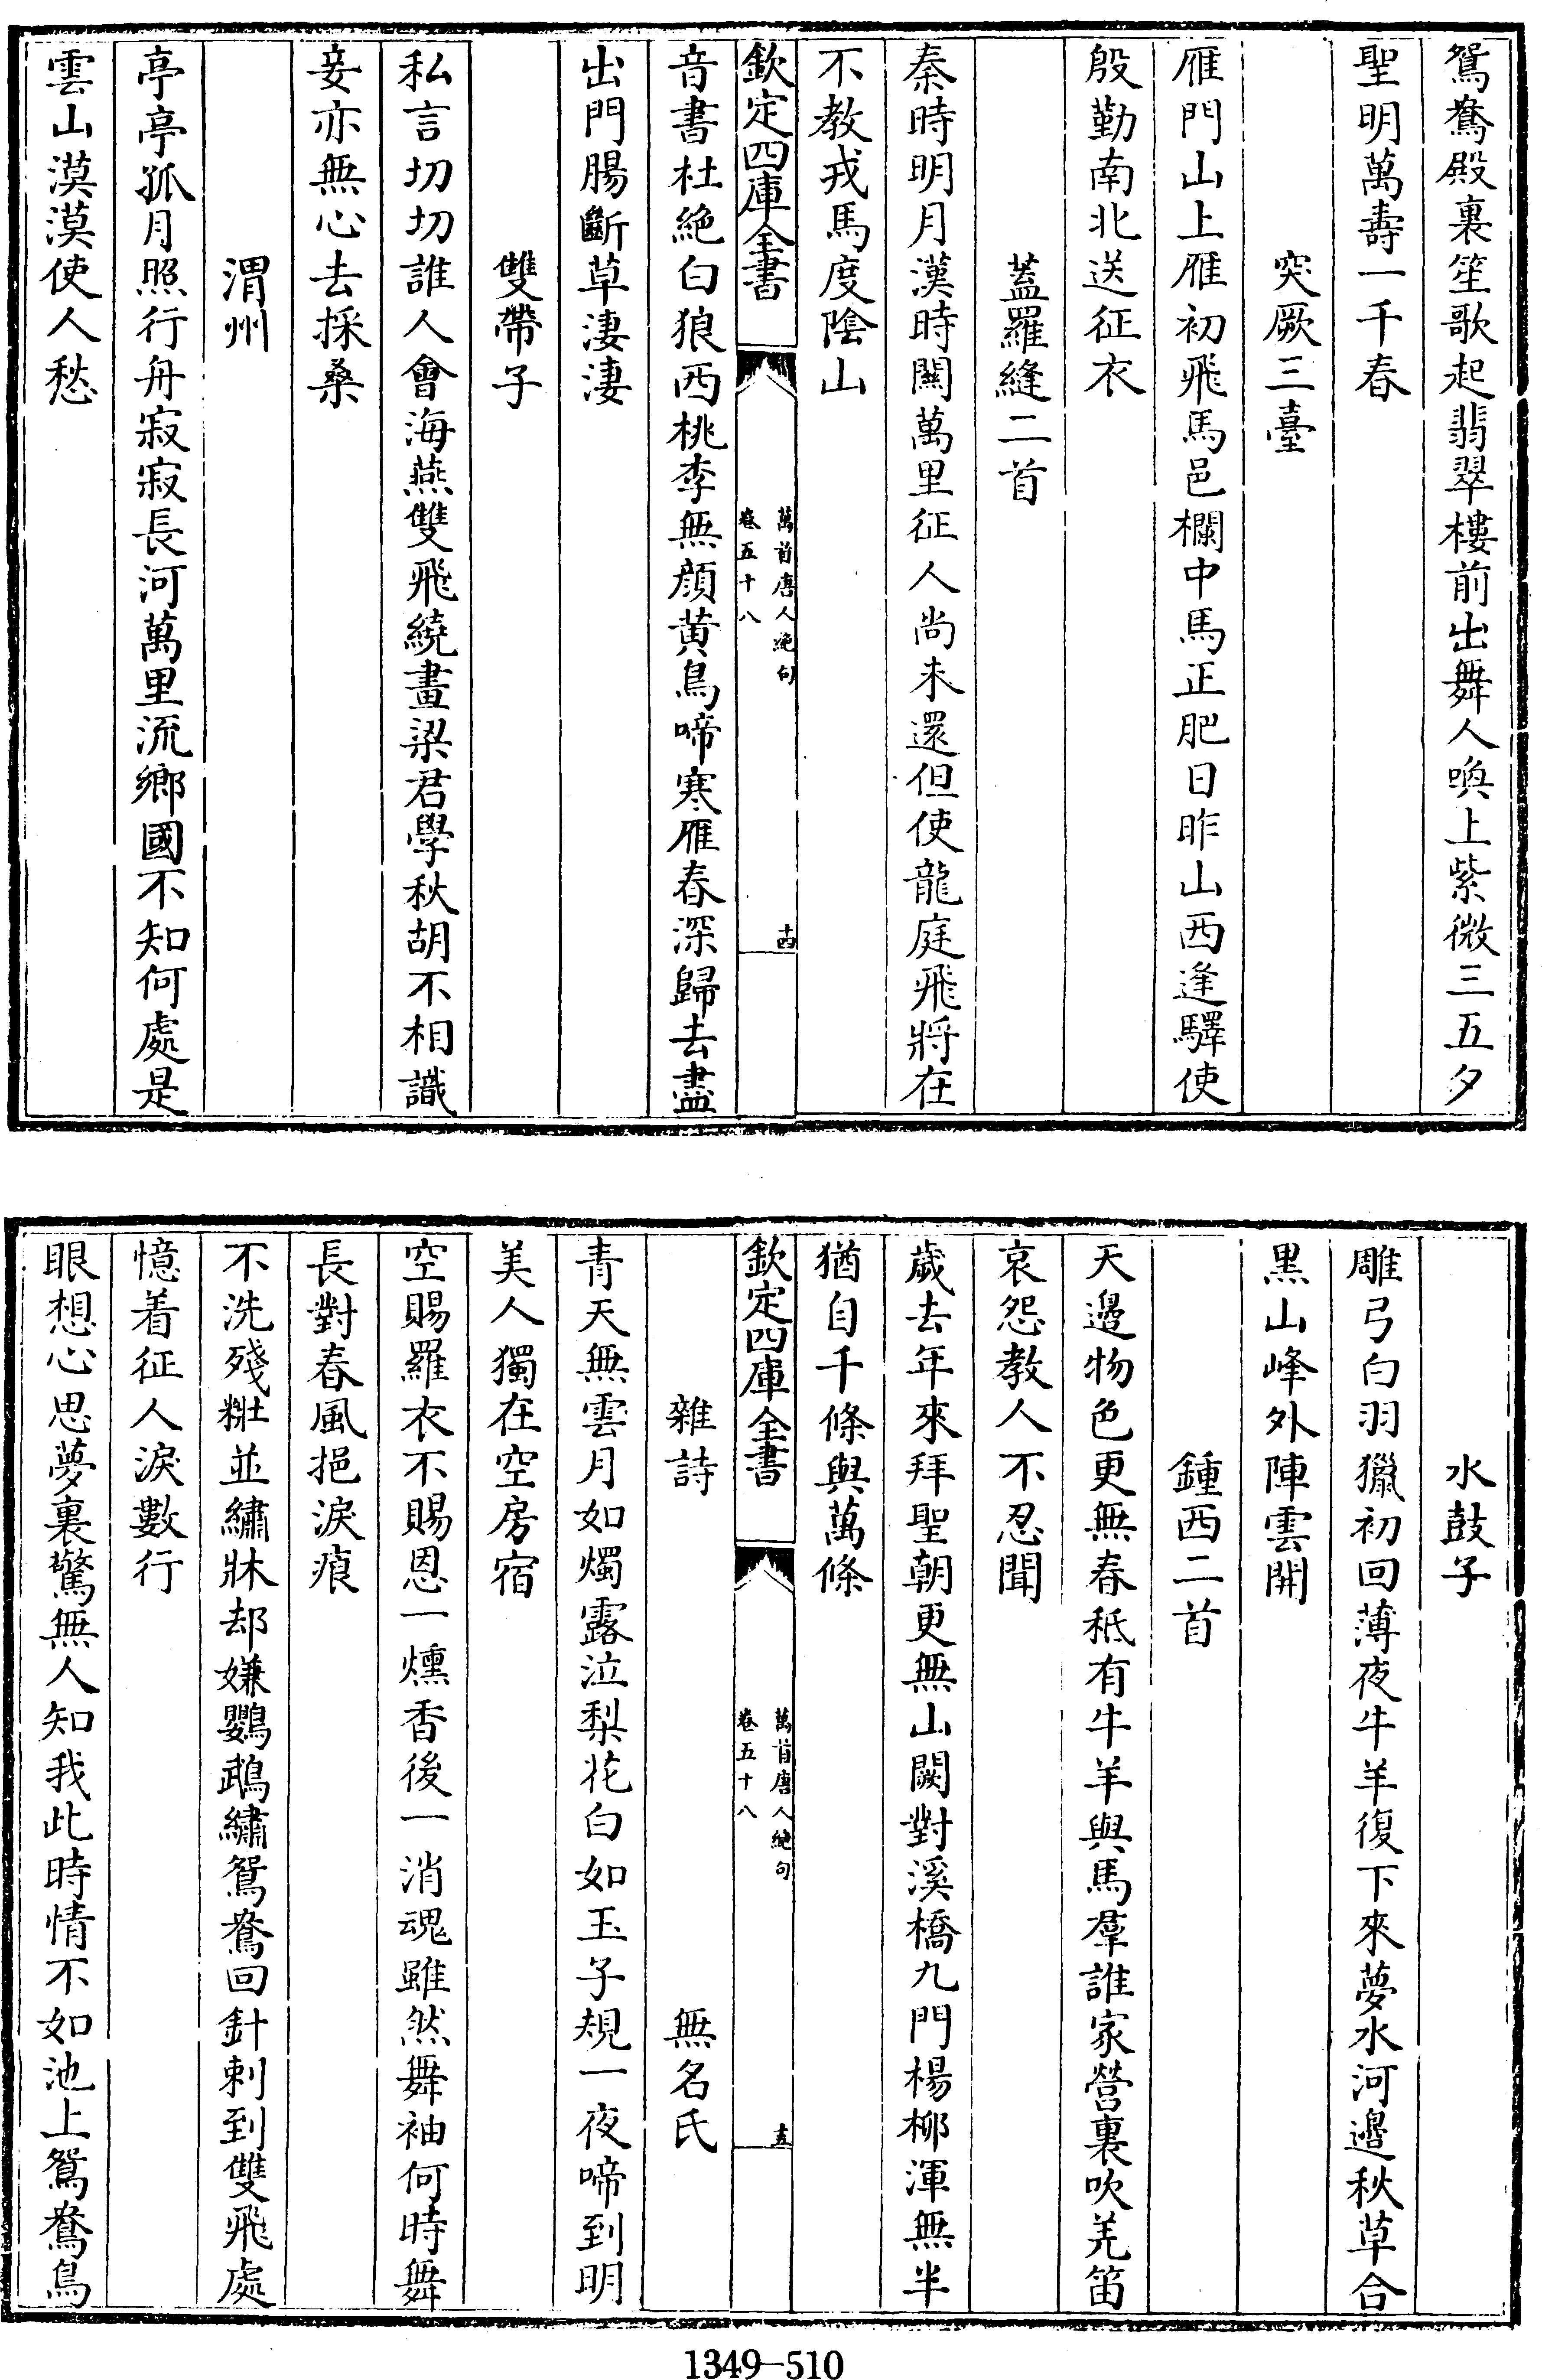 鴛鴦殿裏笙歌起翡翠樓前出舞人喚上紫微三五夕
聖明萬壽一千春
突厥三臺
雁門山上雁初飛馬邑欄中馬正肥日昨山西逢驛使
殷勤南北送征衣
蓋羅縫二首
秦時明月漢時關萬里征人尚未還但使龍庭飛將在
不教戎馬度陰山
欽定四庫全書
萬首唐人絶句
卷五十八
十四
音書杜絶白狼西桃李無顔黄鳥啼寒雁春深歸去盡
出門腸斷草淒淒
雙帶子
私言切切誰人會海燕雙飛繞畫梁君學秋胡不相識
妾亦無心去採桑
渭州
亭亭孤月照行舟寂寂長河萬里流鄉國不知何處是
雲山漠漠使人愁
水鼓子
雕弓白羽獵初回薄夜牛羊復下來夢水河邊秋草合
黑山峰外陣雲開
鍾西二首
天邊物色更無春秪有牛羊與馬羣誰家營裏吹羌笛
哀怨教人不忍聞
歲去年來拜聖朝更無山闕對溪橋九門楊栁渾無半
猶自千條與萬條
欽定四庫全書
萬首唐人絶句
卷五十八
十五
雜詩 無名氏
青天無雲月如燭露泣梨花白如玉子規一夜啼到明
美人獨在空房宿
空賜羅衣不賜恩一燻香後一消魂雖然舞袖何時舞
長對春風挹淚痕
不洗殘粧並繡牀却嫌鸚鵡繡鴛鴦回針刺到雙飛處
憶着征人淚數行
眼想心思夢裏驚無人知我此時情不如池上鴛鴦鳥
1349-510